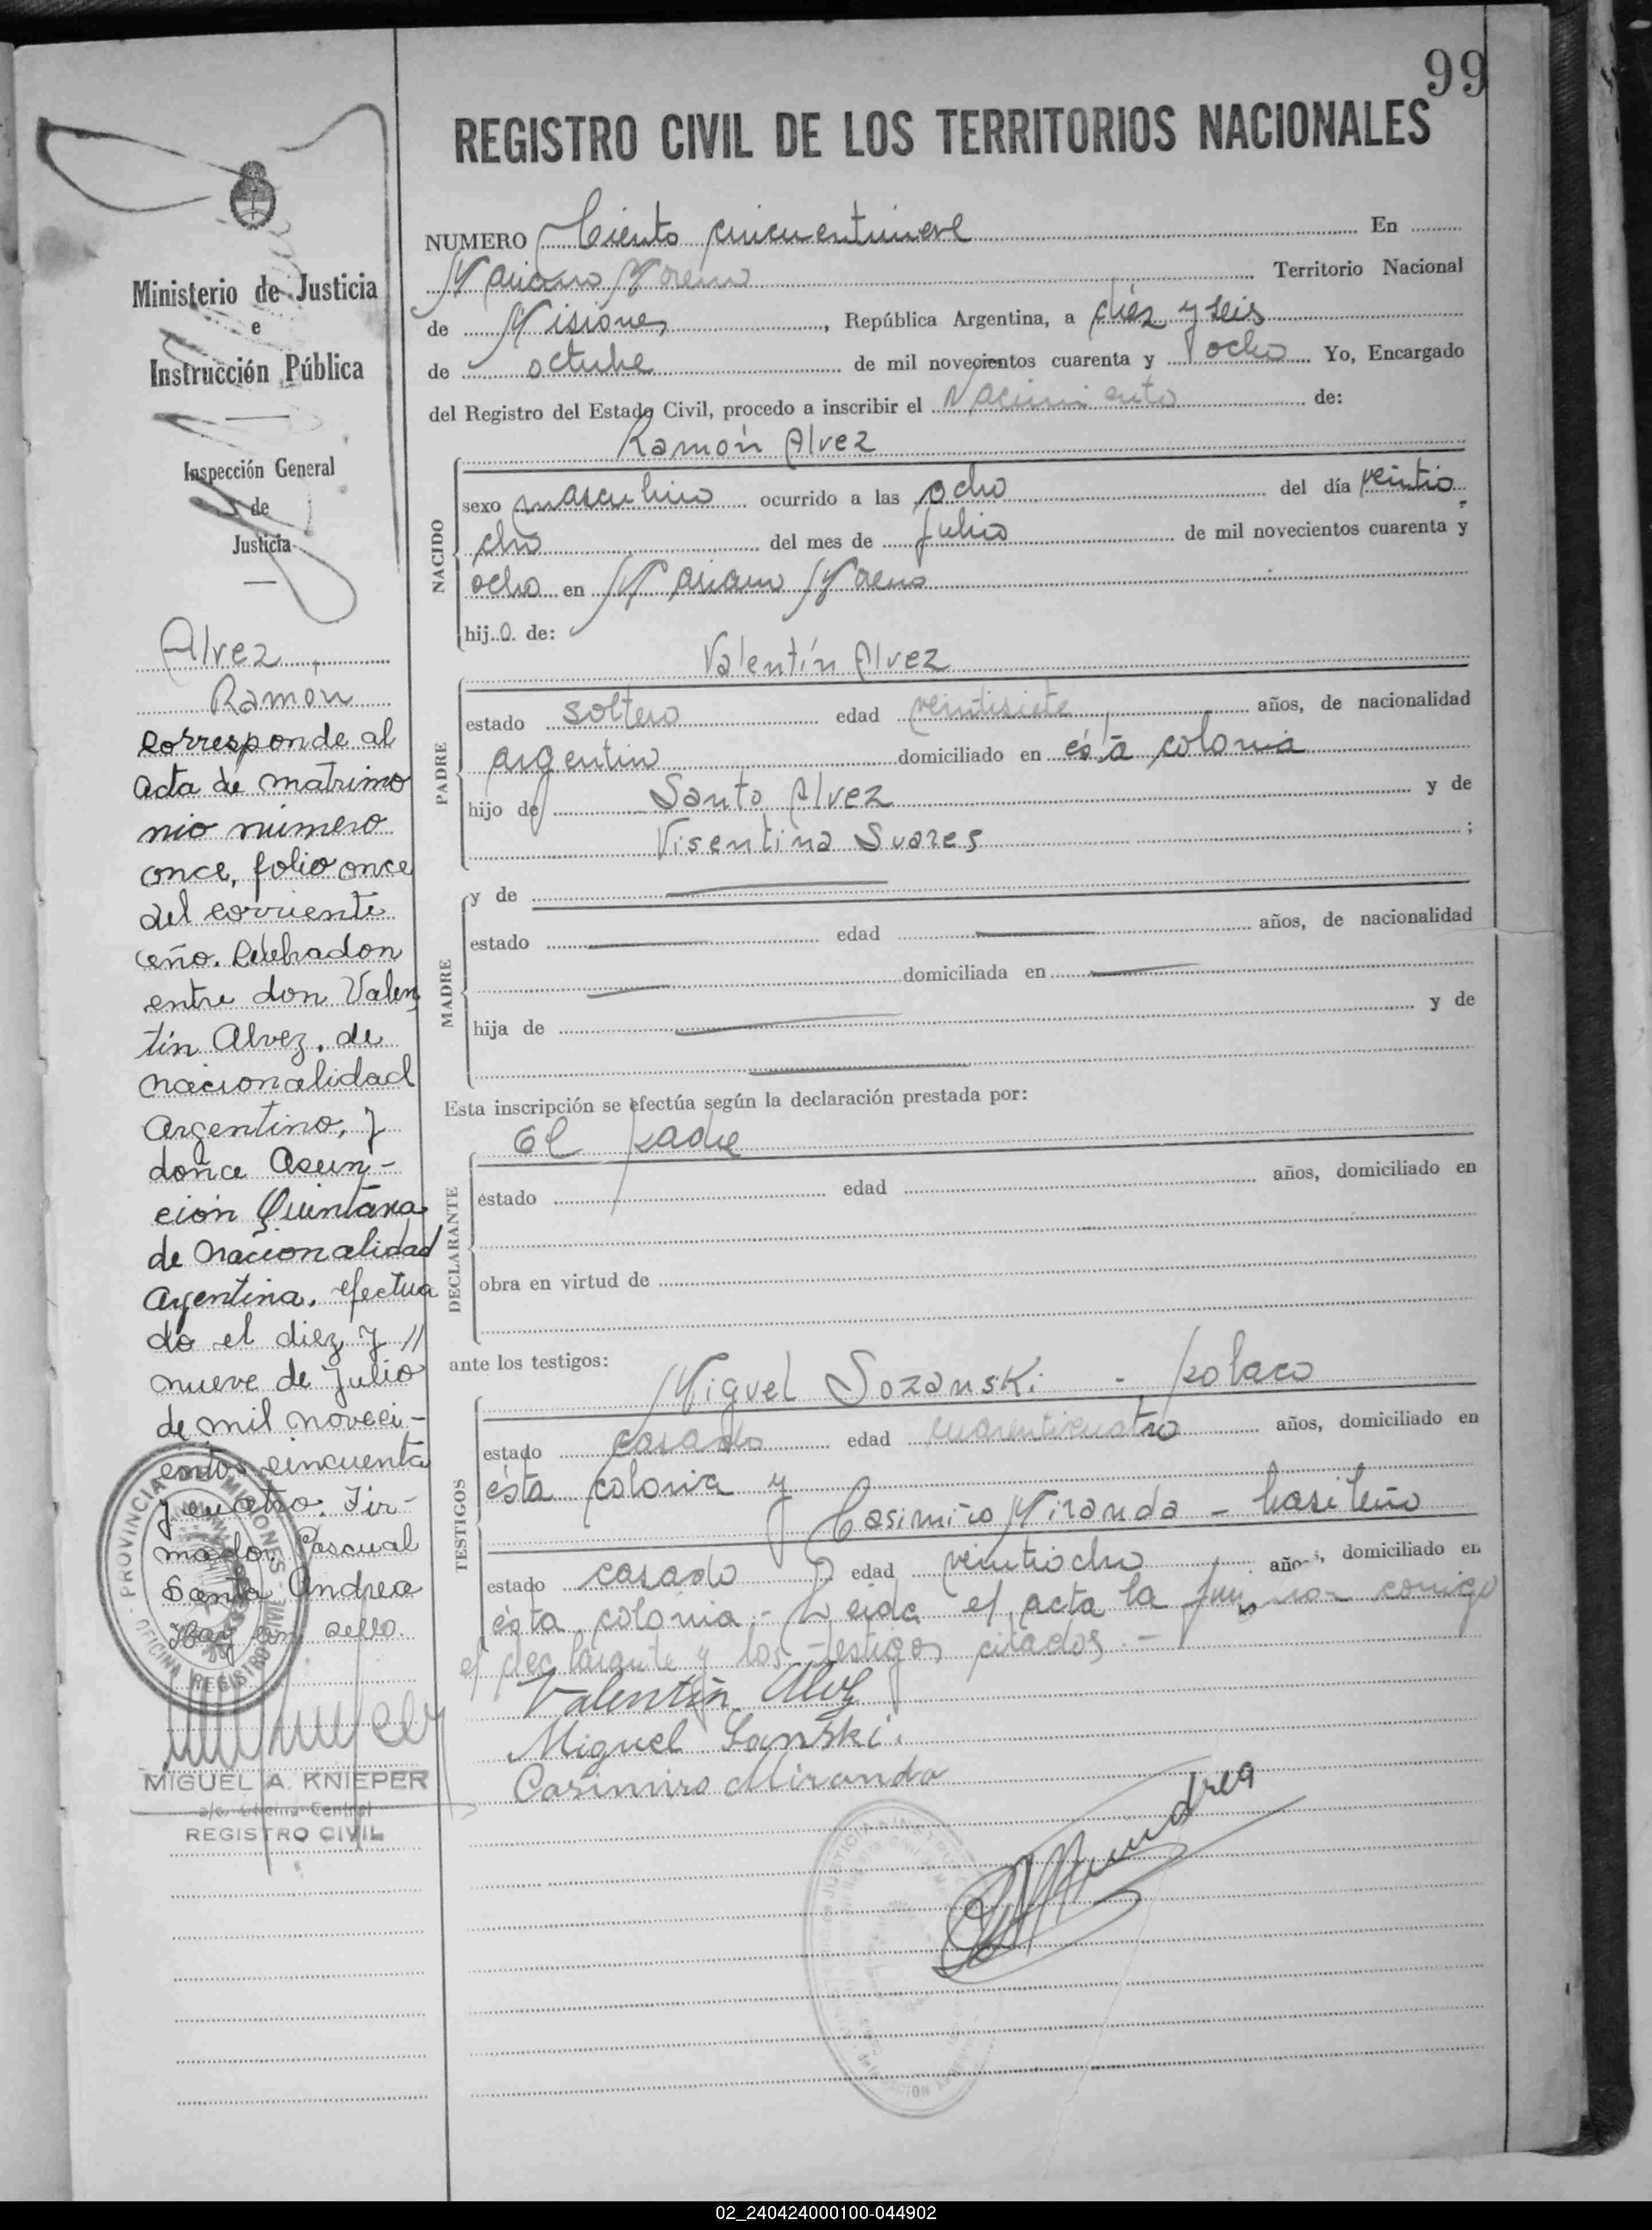 99
REGISTRO CIVIL DE LOS TERRITORIOS NACIONALES
Ministerio de Justicia
e
Instrucción Pública
Inspección General
de
Justicia
Alvez,
Ramón
Corresponde al
acta de matrimo
nio número
once, folio once
del corriente
año. Celebradon
entre don Valen
tín Alvez, de
nacionalidad
Argentino, y
doña Asun-
ción Quintana
de nacionalidad
Argentina. efectua
do el diez y //
nueve de Julio
de mil noveci-
entos cincuenta
y cuatro. Fir-
mado. Pascual
Santa Andrea
Hay un sello
PROVINCIA DE MISIONES
OFICINA REGISTRO CIVIL
MIGUEL A. KNIEPER
a/c. Oficina Central
REGISTRO CIVIL
NUMERO Ciento cincuentinueve En
Mariano Moreno Territorio Nacional
de Misiones, República Argentina, a diéz y seis
de octubre de mil novecientos cuarenta y ocho Yo, Encargado
del Registro del Estado Civil, procedo a inscribir el Nacimiento de:
Ramón Alvez
NACIDO
sexo masculino ocurrido a las ocho del día veintio
cho del mes de julio de mil novecientos cuarenta y
ocho en Mariano Moreno
hijo de:
Valentín Alvez
PADRE
estado soltero edad veintisiete años, de nacionalidad
argentino domiciliado en ésta colonia
hijo de Santo Alvez y de
Visentina Suares ;
MADRE
y de
estado edad años, de nacionalidad
domiciliada en
hija de y de
Esta inscripción se efectúa según la declaración prestada por:
el padre
DECLARANTE
estado edad años, domiciliado en
obra en virtud de
ante los testigos:
Miguel Sozanski - polaco
TESTIGOS
estado casado edad cuarenticuatro años, domiciliado en
ésta colonia y
Casimiro Miranda - brasileño
estado casado edad veintiocho años, domiciliado en
ésta colonia.- Leida el acta la firman conmigo
el declarante y los testigos citados.-
Valentín Alvez
Miguel Sanski.
Casimiro Miranda
02_240424000100-044902